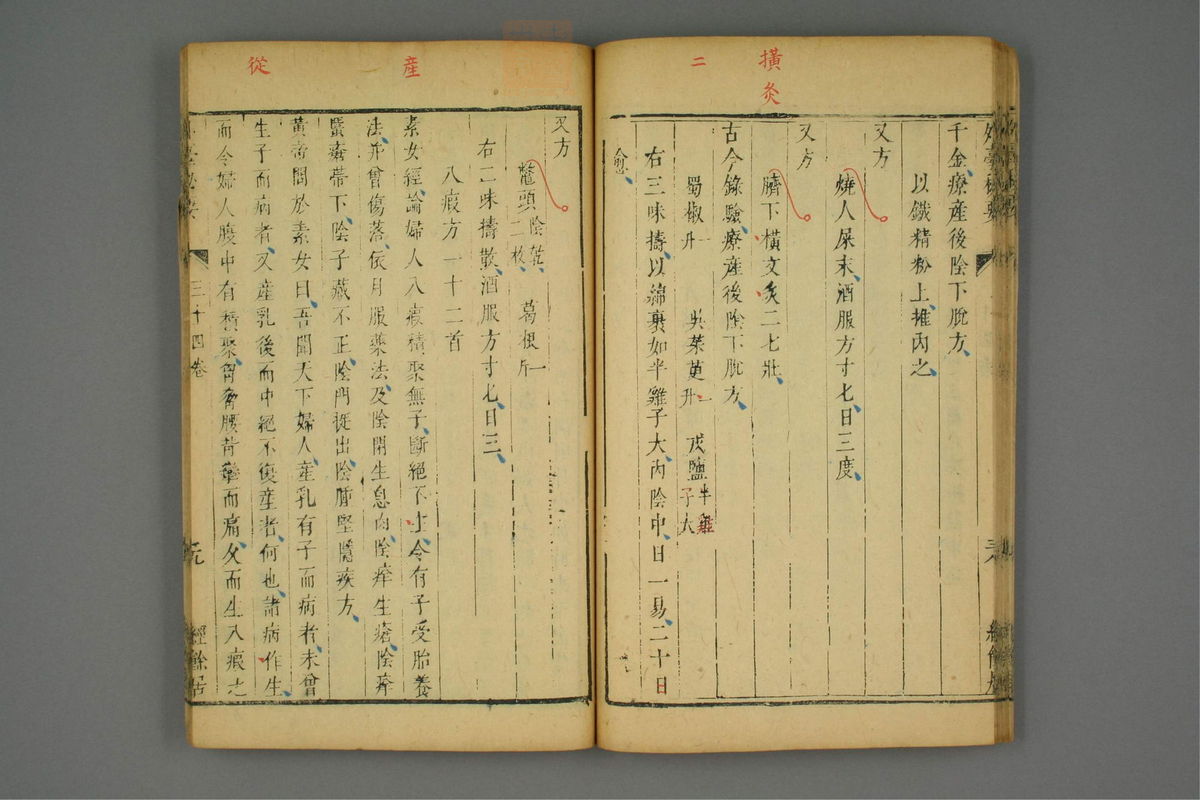 橫灸
二
千金、療產後陰下脫方、
以鐵精粉上、推內之、
又方
燒人屎末、酒服方寸匕、日三度、
又方
臍下橫文灸二七壯、
古今錄驗、療產後陰下脫方、
蜀椒一升 吳茱萸一升 戎鹽半雞子大
右三味擣、以綿裹如半雞子大、內陰中、日一易、二十日
愈、
產
從
又方
鼈頭陰乾、二枚、 葛根一斤
右二味擣散、酒服方寸匕、日三、
八瘕方一十二首
素女經、論婦人八瘕積聚無子、斷絕不上、令有子受胎養
法、并曾傷落、依月服藥法、及陰閉生息肉、陰痒生瘡、陰痒
䘌蟲帶下、陰子藏不正、陰門挺出、陰腫堅隱疾方、
黃帝問於素女曰、吾聞天下婦人、產乳有子而病者、未曾
生子而病者、又產乳後而中絕不復產者、何也、諸病作生、
而令婦人腹中有積聚、胷脅腰背攣而痛、久而生八瘕之
三十四卷
經餘居